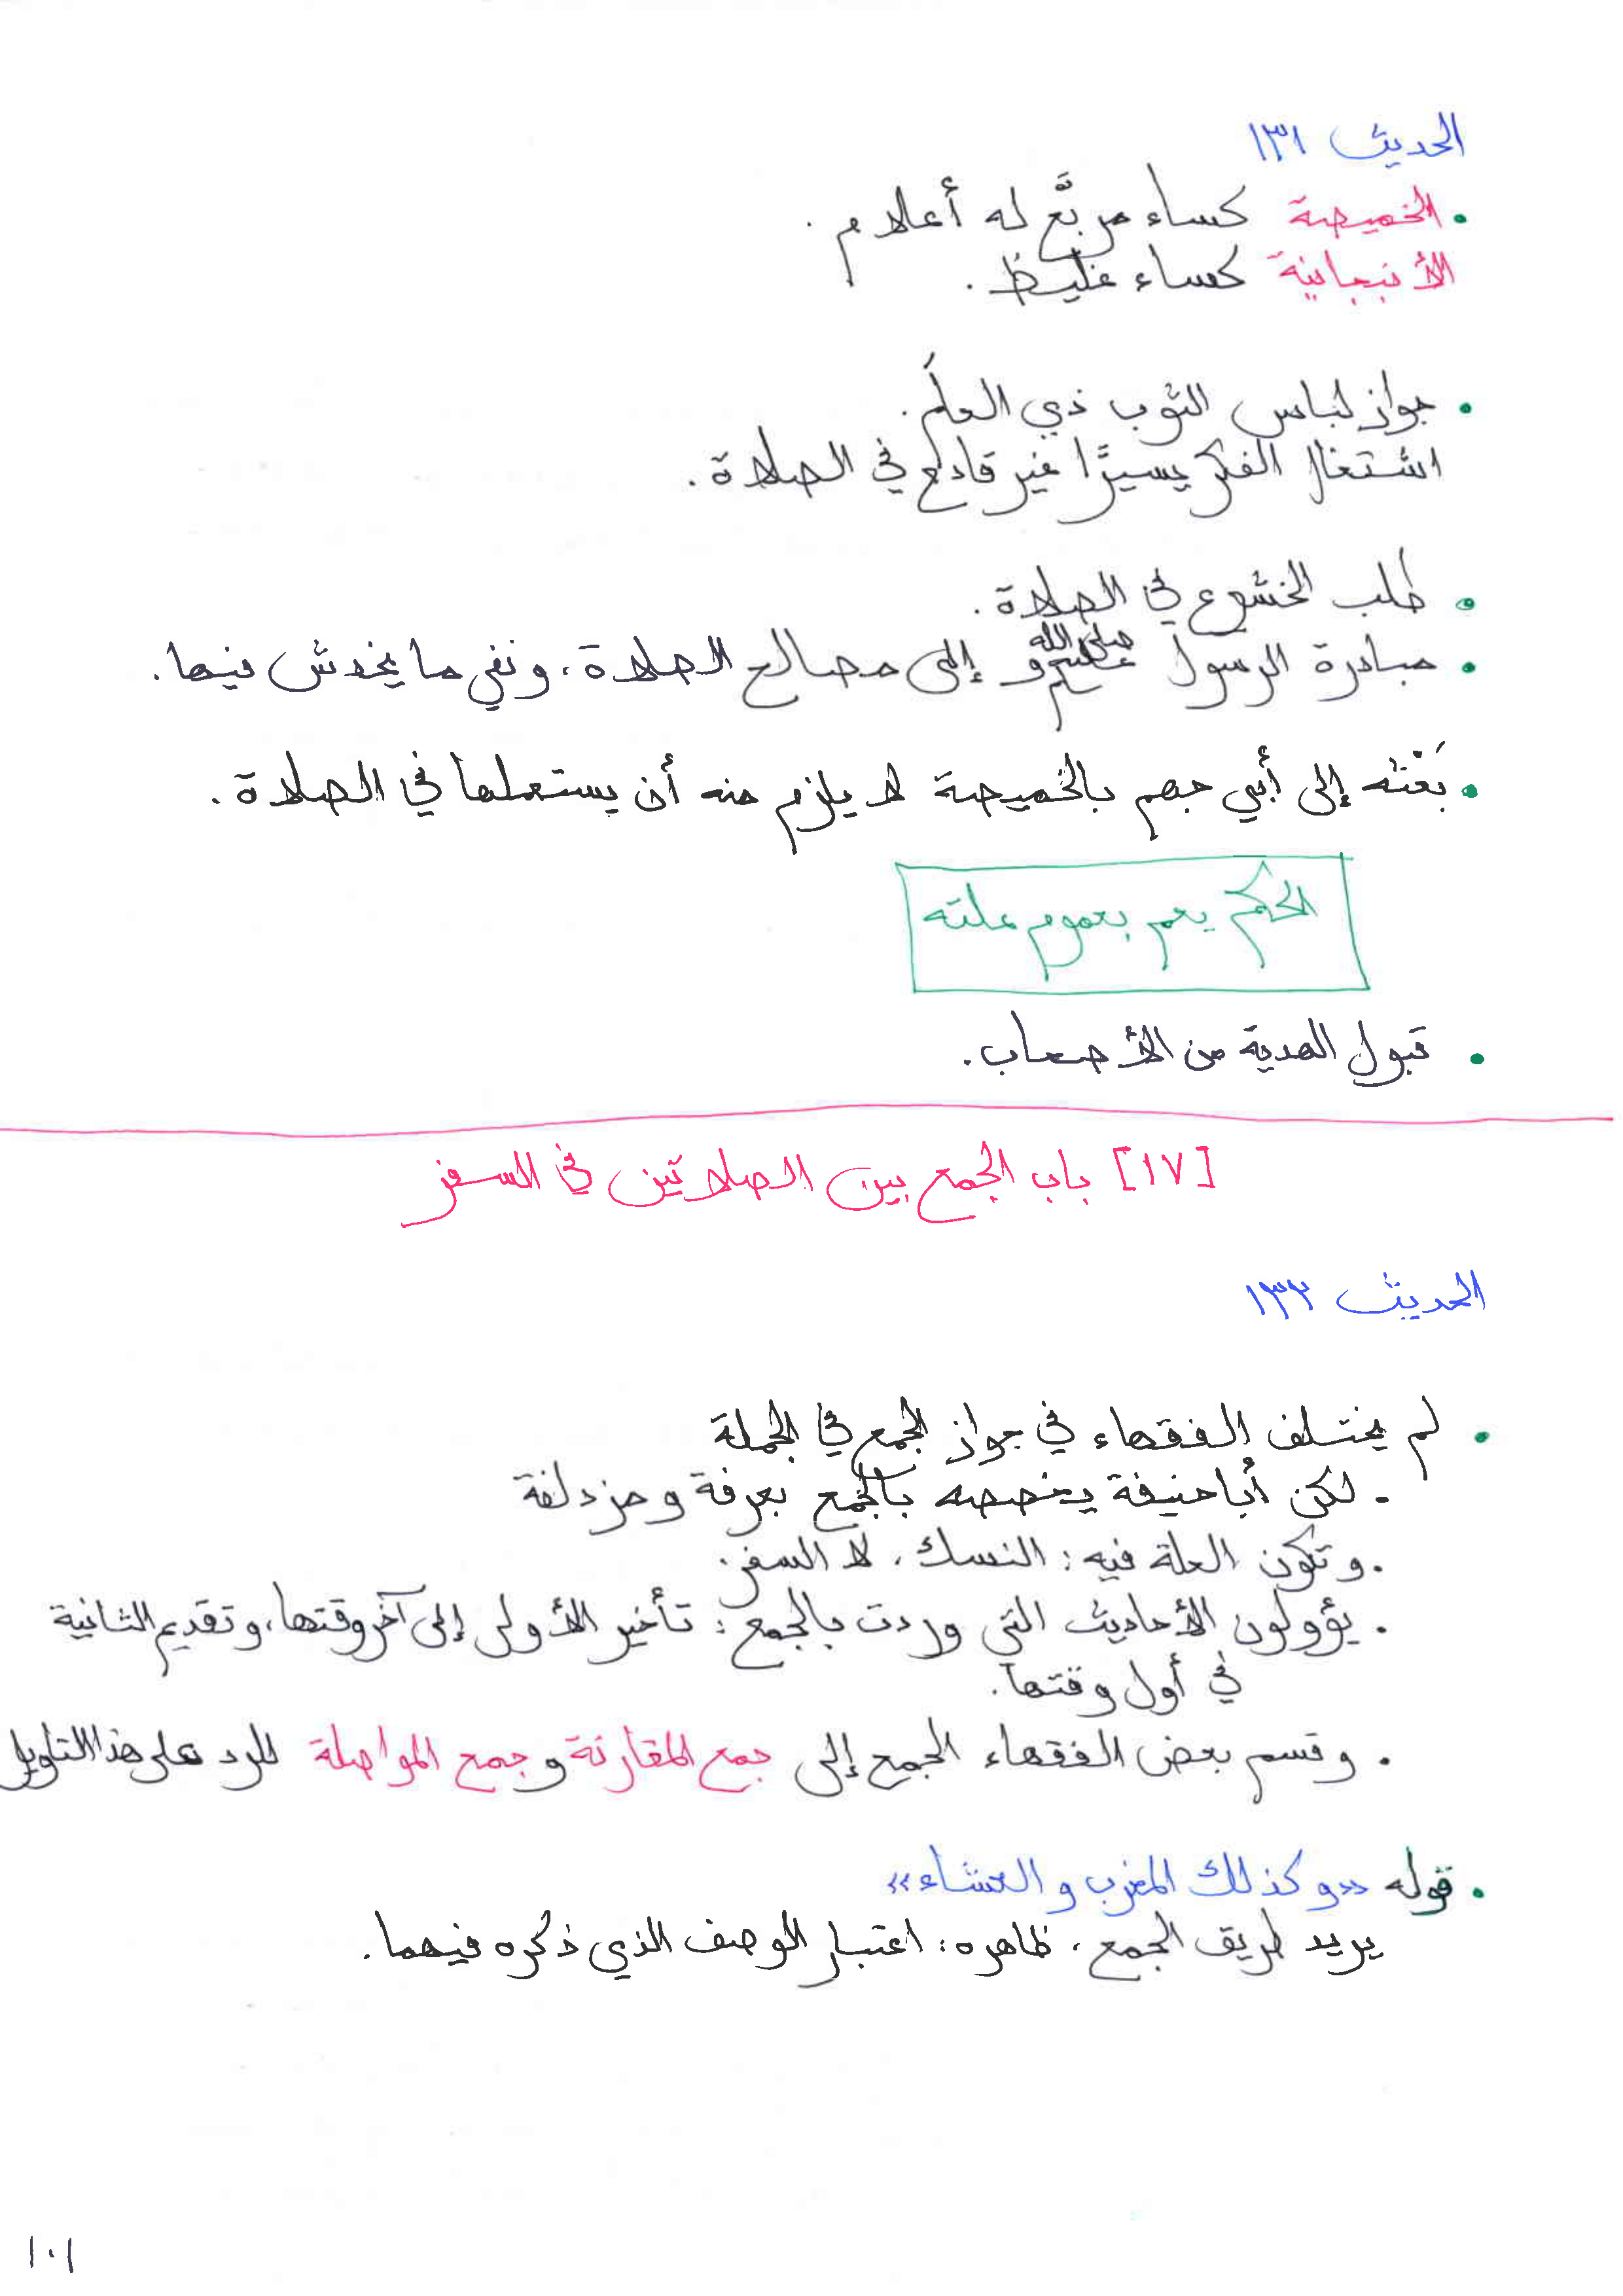 الحديث ١٣١
• الخميصة كساء مربَّع له أعلام.
الأنبجانية كساء غليظ.
• جواز لباس الثوب ذي العلَم.
اشتغال الفكر يسيرًا غير قادح في الصلاة.
• طلب الخشوع في الصلاة.
• مبادرة الرسول صلى الله عليه وسلم إلى مصالح الصلاة، ونفي ما يخدش فيها.
• بَعْثه إلى أبي جهم بالخميصة لا يلزم منه أن يستعملها في الصلاة.
الحكم يعم بعموم علته
• قبول الهدية من الأصحاب.
[١٧] باب الجمع بين الصلاتين في السفر
الحديث ١٣٢
• لم يختلف الفقهاء في جواز الجمع في الجملة
. لكن أبا حنيفة يخصصه بالجمع بعرفة ومزدلفة
. وتكون العلة فيه: النسك، لا السفر.
. يؤولون الأحاديث التي وردت بالجمع: تأخير الأولى إلى آخر وقتها، وتقديم الثانية
في أول وقتها.
. وقسم بعض الفقهاء الجمع إلى جمع المقارنة وجمع المواصلة للرد على هذا التأويل
• قوله «وكذلك المغرب والعشاء»
يريد طريق الجمع، ظاهره: اعتبار الوصف الذي ذكره فيهما.
١٠١